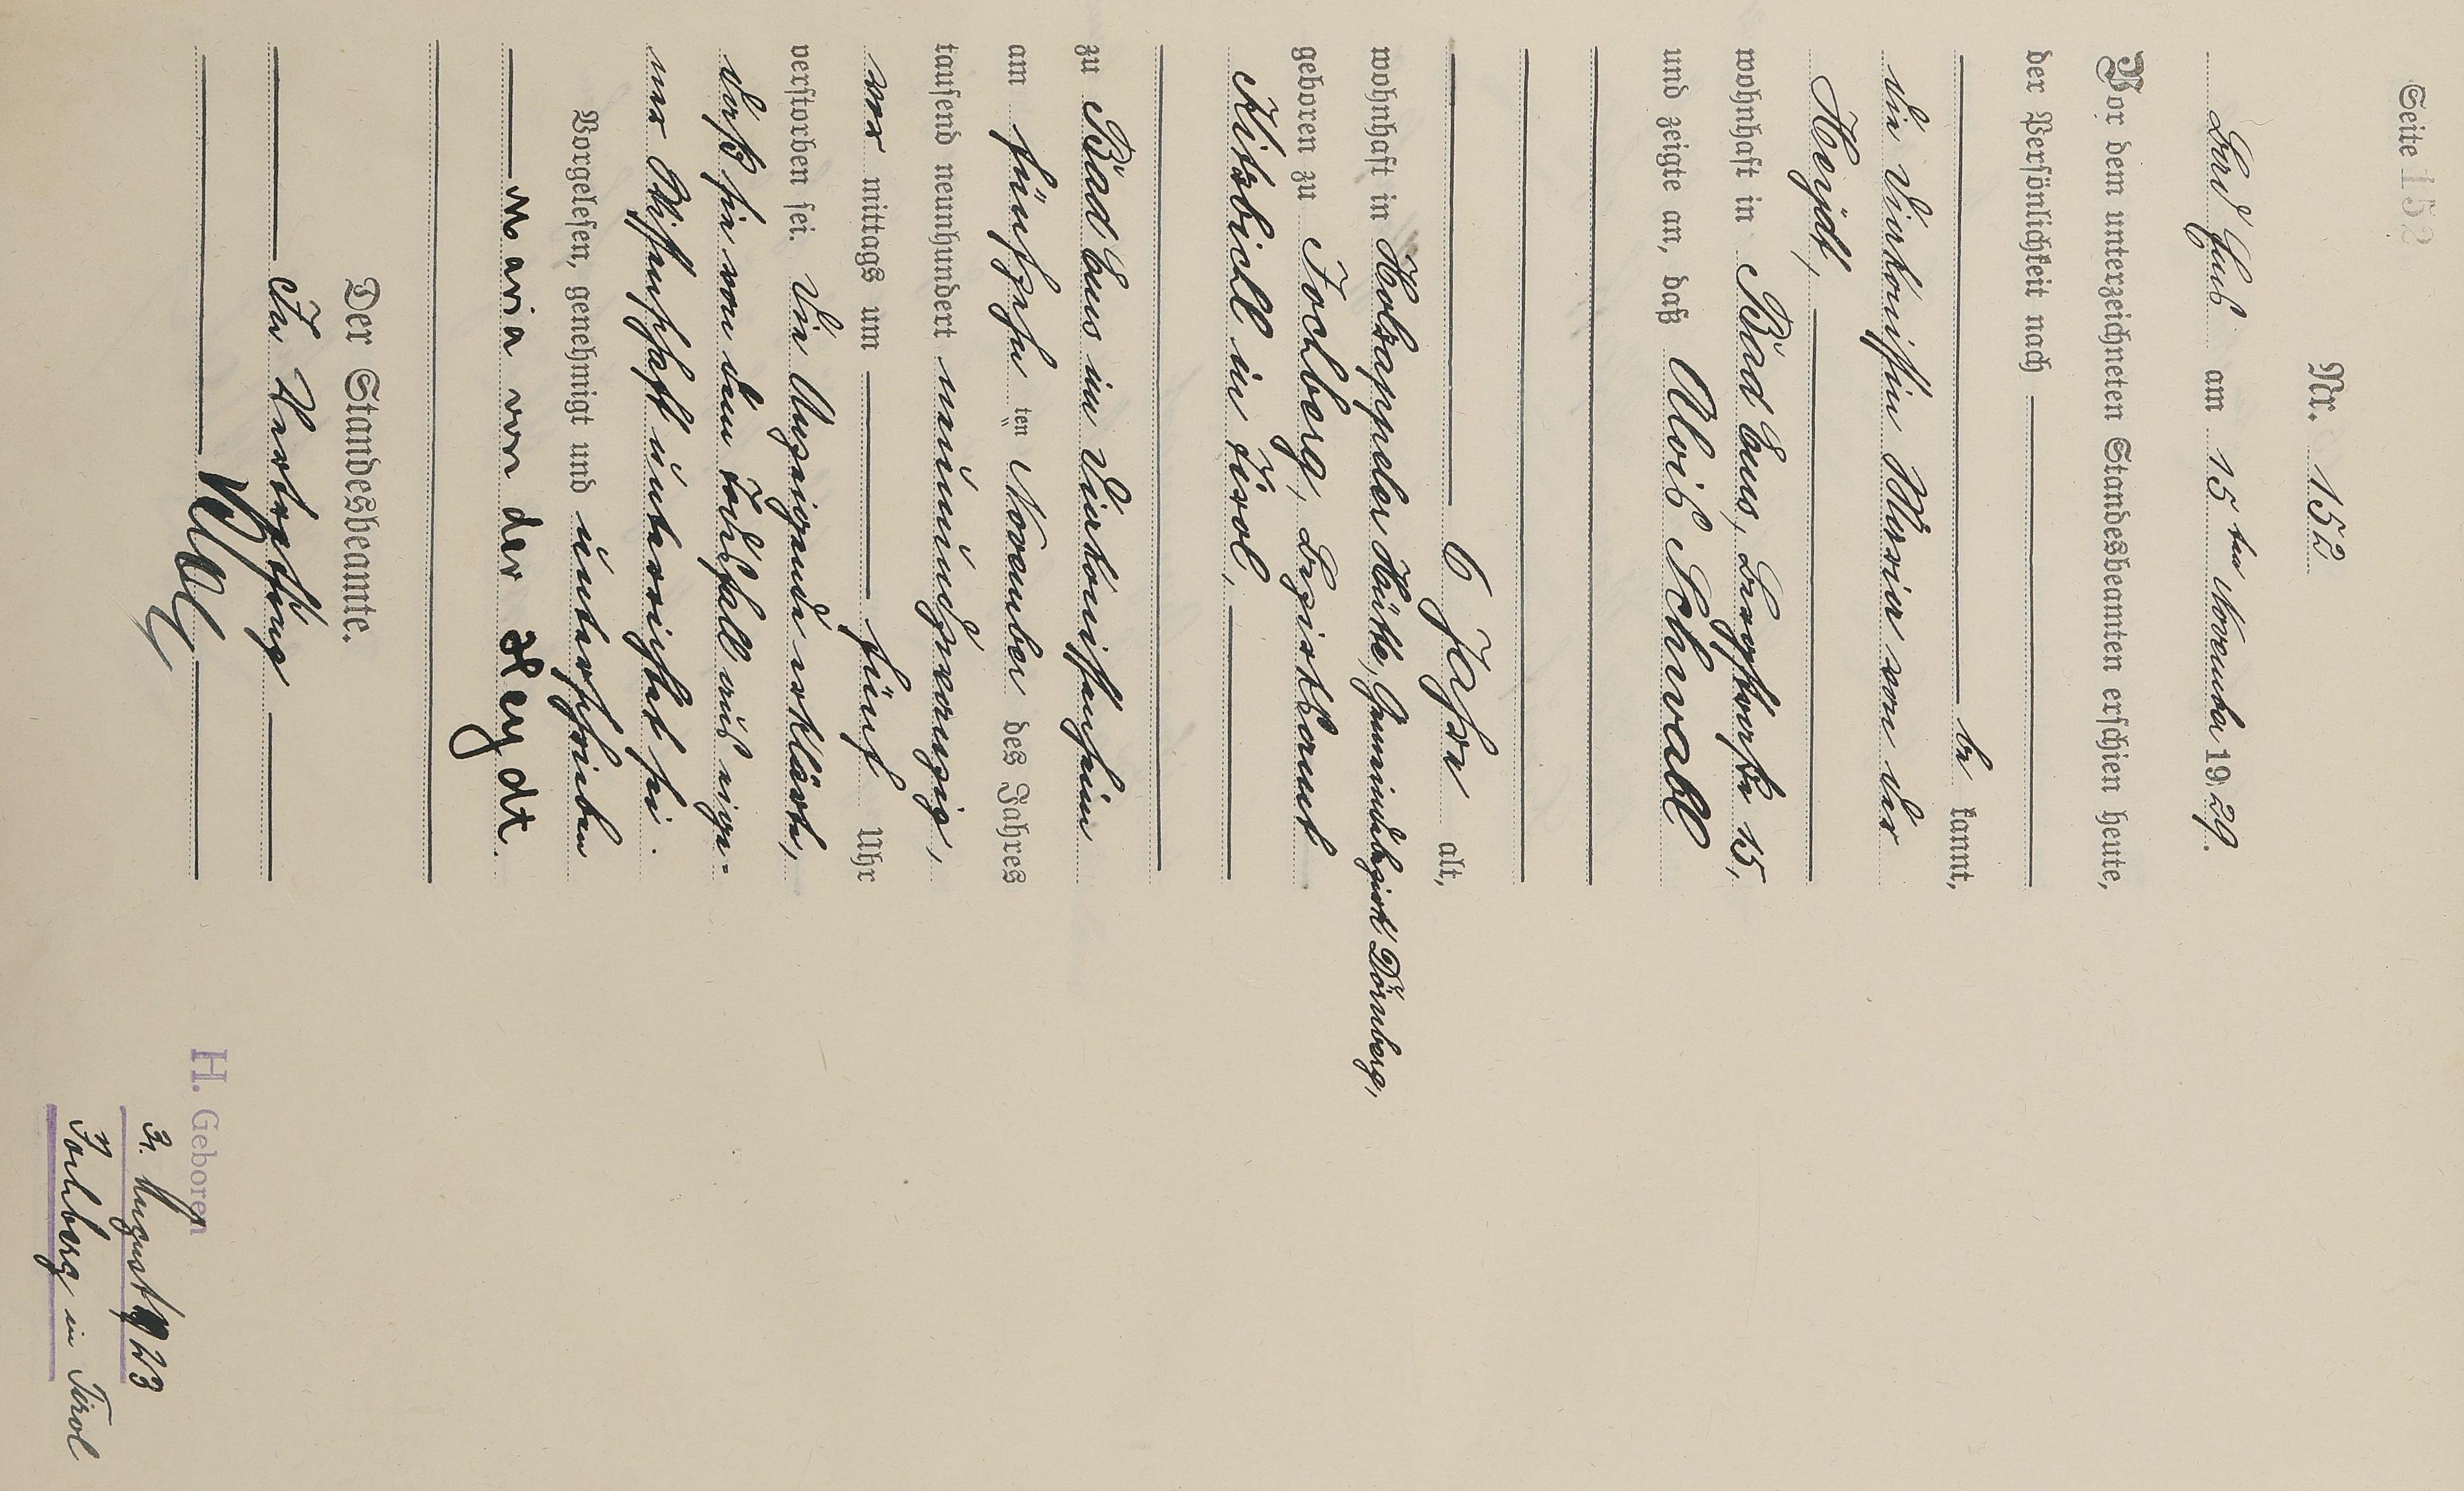 Seite 152
Nr. 152
Bad Ems am 15ten November 1929.
Vor dem unterzeichneten Standesbeamten erschien heute,
der Persönlichkeit nach
be kannt,
die Diakonissin Maria von der
Heydt,
wohnhaft in Bad Ems,
und zeigte an, daß Alois Schwabl
6 Jahre alt,
wohnhaft in Holzappeler Hütte, Gemeindebezirk Dörnberg,
geboren zu Jochberg, Bezirksamt
Kitzbichl in Tirol,
zu Bad Ems im Diakonissenheim
am fünfzehn ten November des Jahres
tausend neunhundert neunundzwanzig,
vor mittags um fünf Uhr
verstorben sei. Die Anzeigende erklärte,
daß sie von dem Todesfall aus eige-
ner Wissenschaft unterrichtet sei.
Vorgelesen, genehmigt und unterschrieben
Maria von der Heydt.
Der Standesbeamte.
In Vertretung
H. Geboren
3. August 1923
Jochberg in Tirol